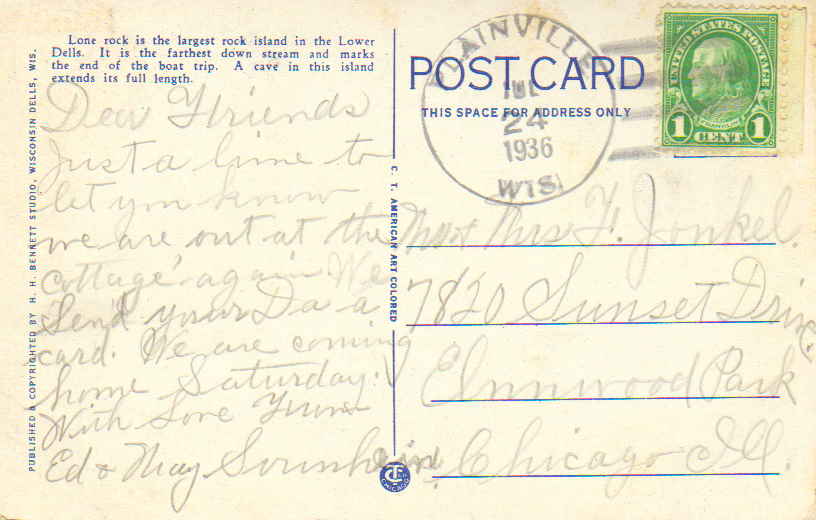 Lone rock is the largest rock island in the Lower
Dells. It is the farthest down stream and marks
the end of the boat trip. A cave in this island
extends its full length.
PUBLISHED & COPYRIGHTED BY H. H. BENNETT STUDIO, WISCONSIN DELLS, WIS.
Dear Friends
Just a line to
let you know
we are out at the
cottage again We
Send your Da a
card. We are coming
home Saturday.
With Love
Ed & May
C. T. AMERICAN ART COLORED
POST CARD
THIS SPACE FOR ADDRESS ONLY
PLAINVILLE
JUL
24
1936
WIS.
UNITED STATES POSTAGE
FRANKLIN
1 CENT 1
Mr & Mrs F. Jonkel.
7820 Sunset Drive.
Elmwood Park
Chicago Ill.
CT
CHICAGO